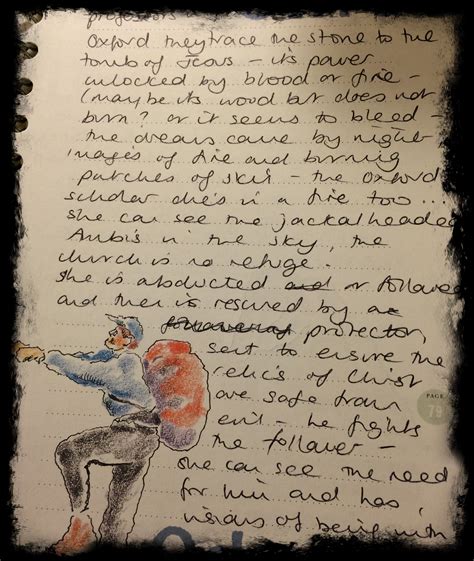 professors
Oxford they trace the stone to the
tomb of Jesus - its power
unlocked by blood or fire -
(maybe its wood but does not
burn? or it seems to bleed -
the dreams came by night
images of fire and burning
patches of skin - the Oxford
scholar dies in a fire too...
she can see the jackal headed
Anubis in the sky, the
church is no refuge.
She is abducted and or followed
and then is rescued by a
protector,
sent to ensure the
relics of Christ
are safe from
PAGE
79
evil - he fights
the follower -
she can see the need
for him and has
visions of being with